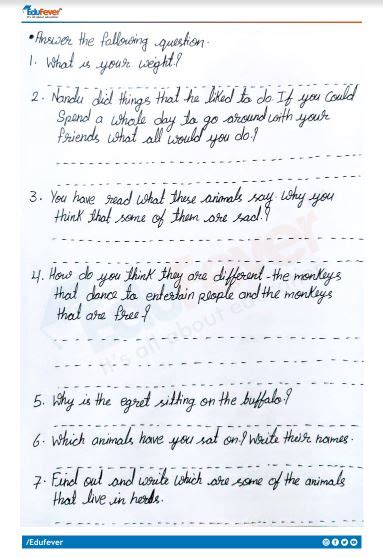 EduFever
It's all about education
•Answer the following question.
1. What is your weight?
2. Nandu did things that he liked to do. If you Could
Spend a whole day to go around with your
friends what all would you do?
3. You have read what these animals say. Why you
think that some of them are sad?
4. How do you think they are different - the monkeys
that dance to entertain people and the monkeys
that are free?
5. Why is the egret sitting on the buffalo?
6. Which animals have you sat on? Write their names.
7. Find out and write which are some of the animals
that live in herds.
/Edufever